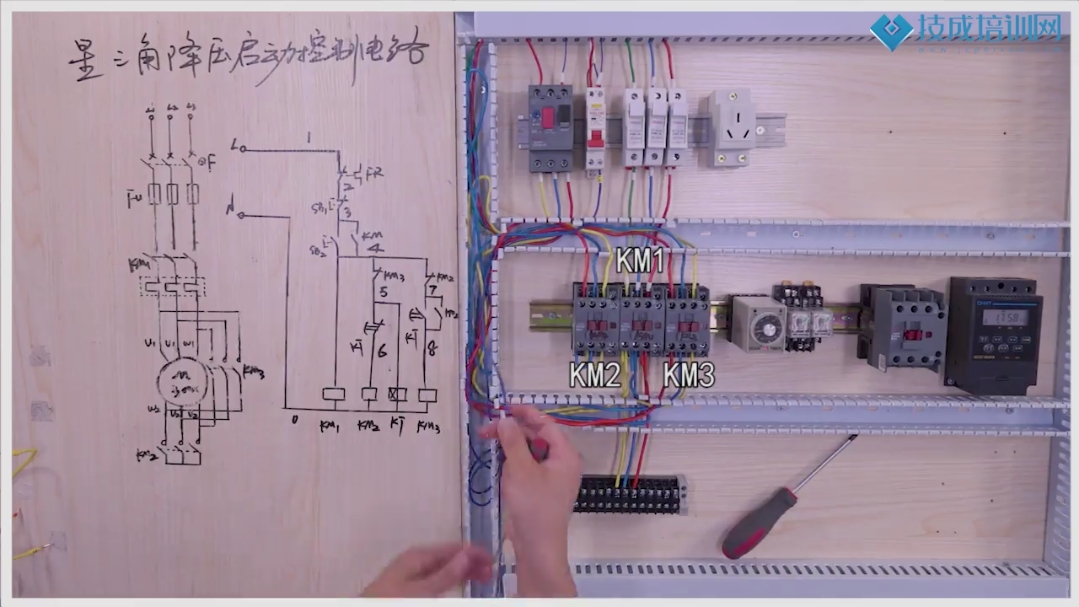 技成培训网
星三角降压启动控制电路
L1 L2 L3
QF
FU
KM1
U1 V1 W1
M
3~
W2 U2 V2
KM2
KM3
L
1
FR
2
SB1
3
N
KM
SB2
4
KM3
KM2
5
7
KT
KT
6
8
0
KM1 KM2 KT KM3
KM1
KM2
KM3